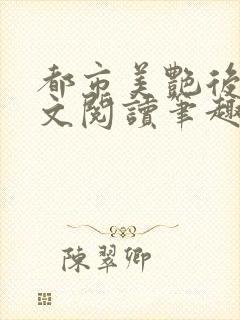 都市美艷後
文閱讀筆趣
陳翠卿